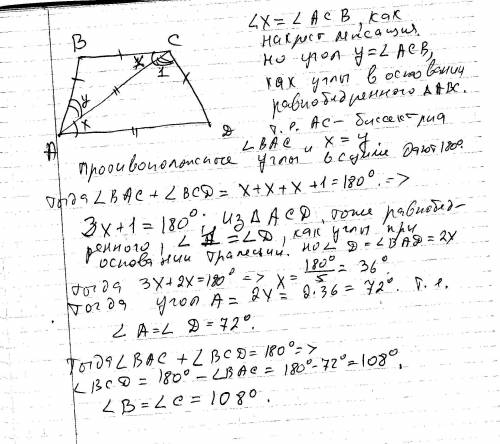 ∠X = ∠ACB, как
накрест лежащие.
но угол y = ∠ACB,
как углы в основании
равнобедренного ΔABC.
т.е. AC - биссектриса
B
C
x
1
y
x
A
D
∠BAC и x = y.
Противоположные углы в сумме дают 180.
тогда ∠BAC + ∠BCD = x + x + x + 1 = 180°. =>
3x + 1 = 180°; из ΔACD, тоже равнобед-
ренного, ∠1 = ∠D, как углы при
основании трапеции. но ∠D = ∠BAD = 2x
тогда 3x + 2x = 180° => x = 180°/5 = 36°
тогда угол A = 2x = 2·36 = 72°. т.е.
∠A = ∠D = 72°.
Тогда ∠BAC + ∠BCD = 180° =>
∠BCD = 180° - ∠BAC = 180° - 72° = 108°.
∠B = ∠C = 108°.